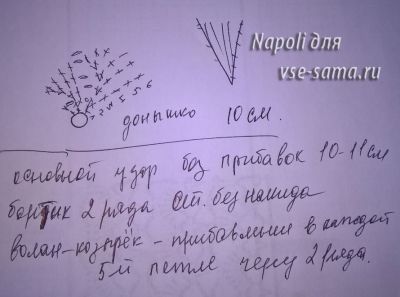 Napoli для
vse-sama.ru
1 2 3 4 5 6
донышко 10 см.
основной узор без прибавок 10-11 см
бортик 2 ряда ст. без накида
волан-козырёк - прибавления в каждой
5й петле через 2 ряда.